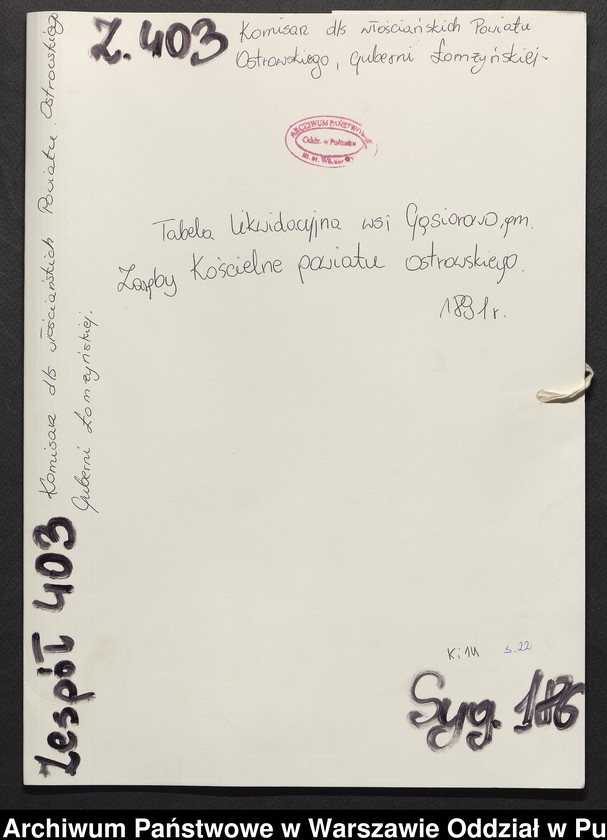 Z. 403
Komisarz d/s włościańskich Powiatu
Ostrowskiego, Guberni Łomżyńskiej
ARCHIWUM PAŃSTWOWE
Oddz. w Pułtusku
Tabela likwidacyjna wsi Gąsiorowo, gm.
Zaręby Kościelne powiatu ostrowskiego.
1891 r.
Komisarz d/s włościańskich Powiatu Ostrowskiego
Guberni Łomżyńskiej.
Zespół 403
s. 22
Syg.
Archiwum Państwowe w Warszawie Oddział w Pu